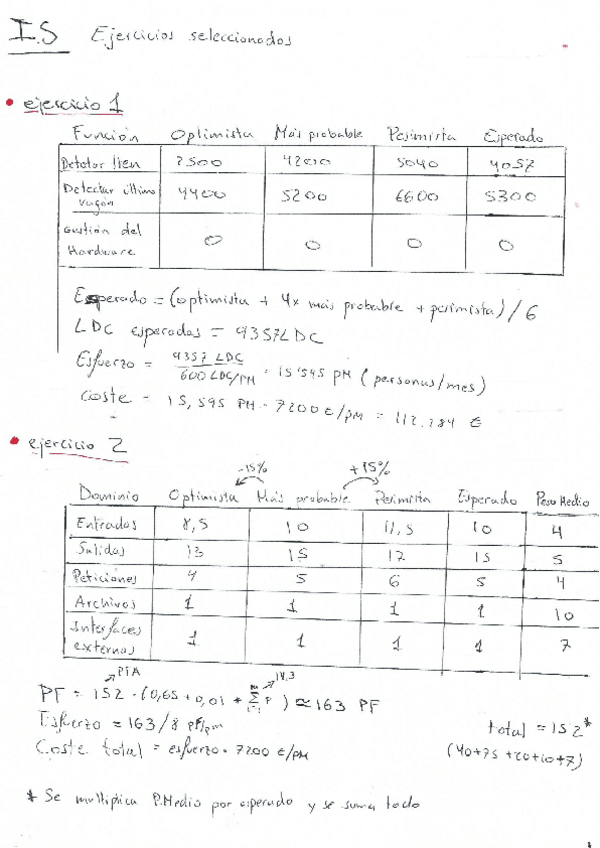 I.S Ejercicios seleccionados
• ejercicio 1
Función Optimista Más probable Pesimista Esperado
Detectar tren 2500 42000 5040 4057
Detectar último vagón 4400 5200 6600 5300
Gestión del Hardware 0 0 0 0
Esperado = (optimista + 4x más probable + pesimista) / 6
LDC esperadas = 9357 LDC
Esfuerzo = 9357 LDC / 600 LDC/PM = 15'595 PM (personas/mes)
Coste = 15,595 PM · 7200 €/pm = 112.284 €
• ejercicio 2
-15% +15%
Dominio Optimista Más probable Pesimista Esperado Peso Medio
Entradas 8,5 10 11,5 10 4
Salidas 13 15 17 15 5
Peticiones 4 5 6 5 4
Archivos 1 1 1 1 10
Interfaces externas 1 1 1 1 7
PF = 152 · (0,65 + 0,01 * Σ ) ≈ 163 PF
Esfuerzo = 163/8 PF/pm
total = 152*
Coste total = esfuerzo · 7200 €/pm
(40+75+20+10+7)
* Se multiplica P.Medio por esperado y se suma todo